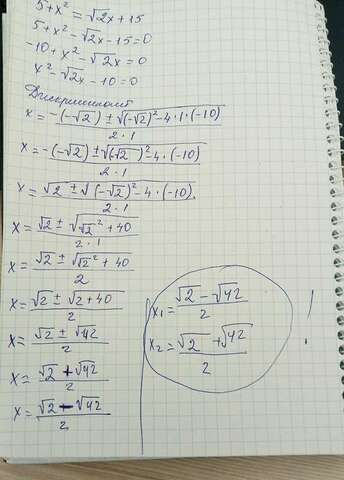 5+x² = √2x+15
5+x²-√2x-15=0
-10+x²-√2x=0
x²-√2x-10=0
Дискриминант
x = -(-√2) ± √(-√2)²-4·1·(-10) / 2·1
x = -(-√2) ± √(√2)²-4·(-10) / 2·1
x = √2 ± √(-√2)²-4·(-10) / 2·1
x = √2 ± √√2²+40 / 2·1
x = √2 ± √√2²+40 / 2
x = √2 ± √2+40 / 2
x = √2 ± √42 / 2
x = √2 + √42 / 2
x = √2 - √42 / 2
x₁ = √2 - √42 / 2
x₂ = √2 + √42 / 2
!